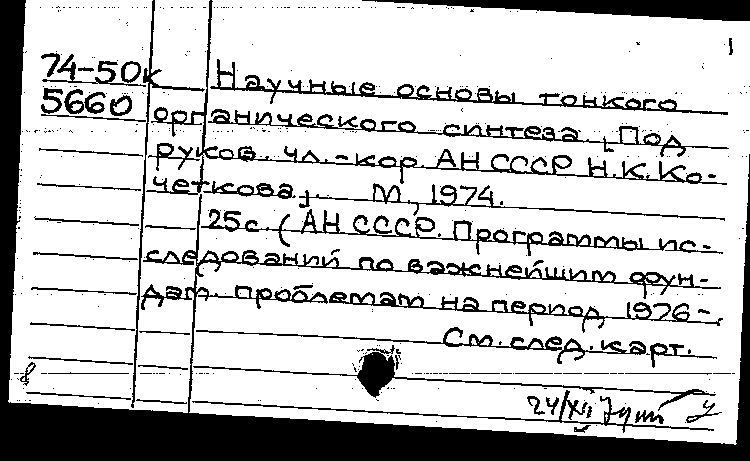 1
74-50к Научные основы тонкого
5660 органического синтеза. [Под
руков. чл.-кор АН СССР Н.К.Ко-
четкова]. М, 1974.
25с. (АН СССР. Программы ис-
следований по важнейшим фун-
дам. проблемам на период 1976-
См. след. карт.
8
24/XII